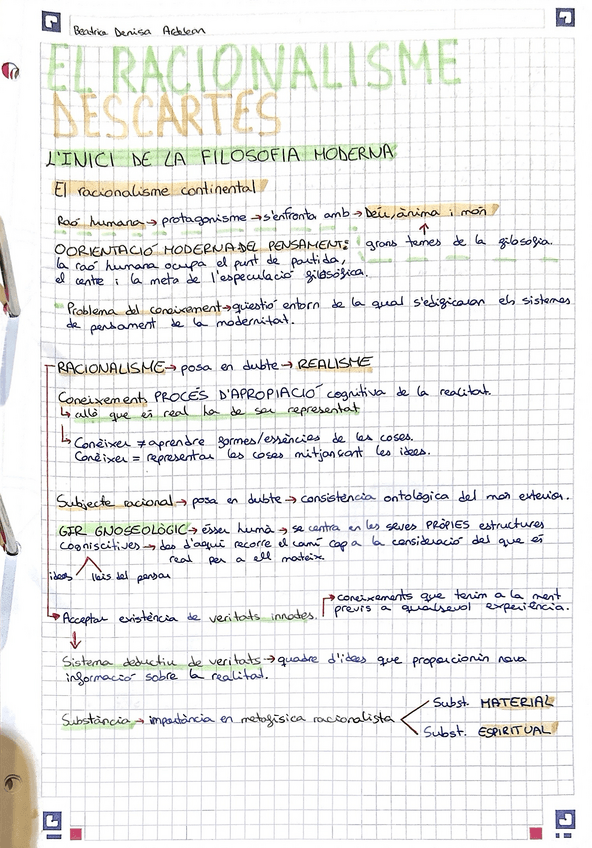 Beatrice Denisa
EL RACIONALISME
DESCARTES
L'INICI DE LA FILOSOFIA MODERNA
El racionalisme continental
Raó humana → protagonisme → s'enfronta amb → Déu, ànima i món
grans temes de la filosofia.
OORIENTACIÓ MODERNA DEL PENSAMENT:
la raó humana ocupa el punt de partida,
el centre i la meta de l'especulació filosòfica.
Problema del coneixement → qüestió entorn de la qual s'edificaran els sistemes
de pensament de la modernitat.
RACIONALISME → posa en dubte → REALISME
Coneixement: PROCÉS D'APROPIACIÓ cognitiva de la realitat.
↳ allò que és real ha de ser representat
↳ Conèixer ≠ aprendre formes/essències de les coses.
Conèixer = representar les coses mitjançant les idees.
Subjecte racional → posa en dubte → consistència ontològica del món exterior.
GIR GNOSEOLÒGIC → ésser humà → se centra en les seves PRÒPIES estructures
cogniscitives → des d'aquí recorre el camí cap a la consideració del que és
real per a ell mateix.
idees lleis del pensar
Acceptar existència de veritats innates.
→ coneixements que tenim a la ment
previs a qualsevol experiència.
Sistema deductiu de veritats → quadre d'idees que proporcionin nova
informació sobre la realitat.
Substància → importància en metafísica racionalista
Subst. MATERIAL
Subst. ESPIRITUAL